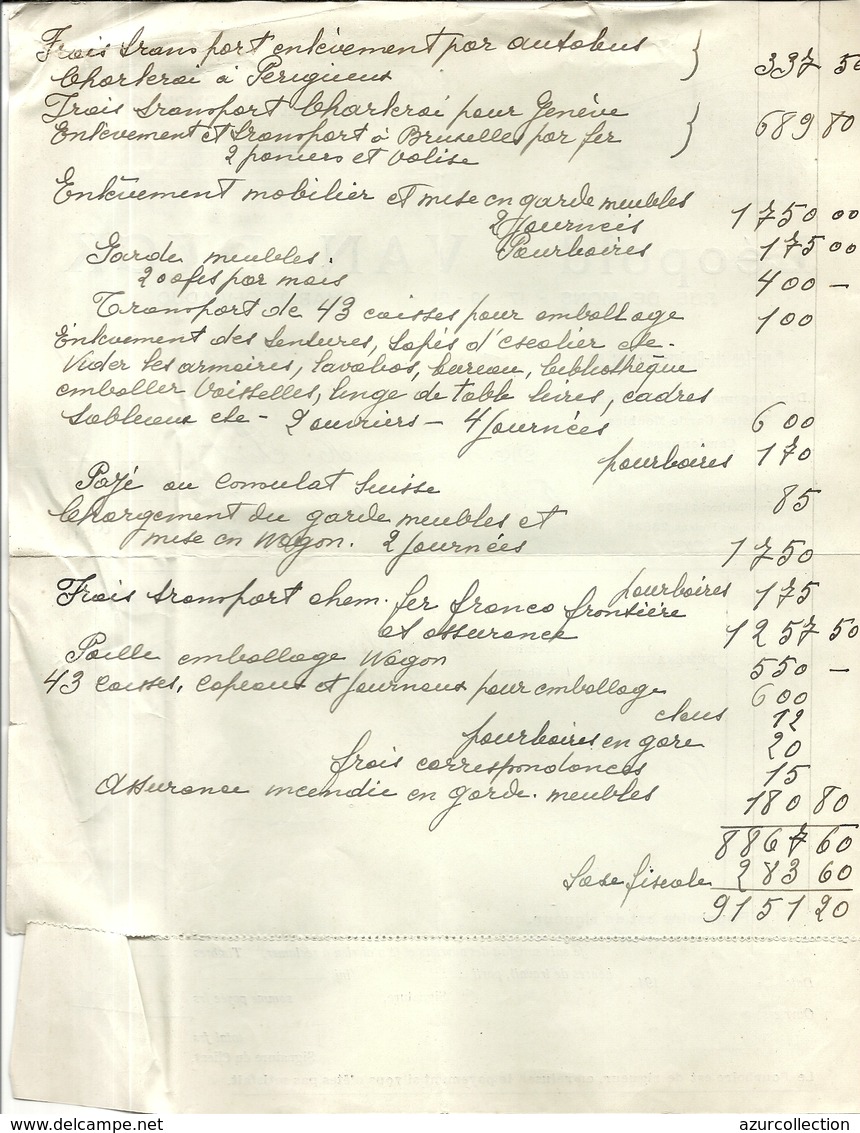 Frais transport enlèvement par autobus
Charleroi à Perigueux } 337 50
Frais transport Charleroi pour Genève
Enlèvement et transport à Bruxelles par fer } 689 80
2 paniers et valise
Enlèvement mobilier et mise en garde meubles
2 journeés 1750 00
Pourboires 175 00
Garde meubles.
200 frs par mois 400 —
Transport de 43 caisses pour emballage 100
Enlevement des tentures, tapis d'escalier etc -
Vider les armoires, lavabos, bureau, bibliothèque
emballer Vaisselles, linge de table livres, cadres
tableaux etc - 2 ouvriers - 4 journées 600
pourboires 170
Payé au Consulat Suisse 85
Chargement du garde meubles et
mise en Wagon. 2 journées 1750
pourboires 175
Frais transport chem. fer franco frontière
et assurance 1257 50
Paille emballage Wagon 550 —
43 Caisses, Copeaux et journaux pour emballage 600
clous 12
pourboires en gare 20
frais correspondances 15
Assurance incendie en garde-meubles 180 80
8867 60
Taxe fiscale 283 60
9151 20
azurcollection